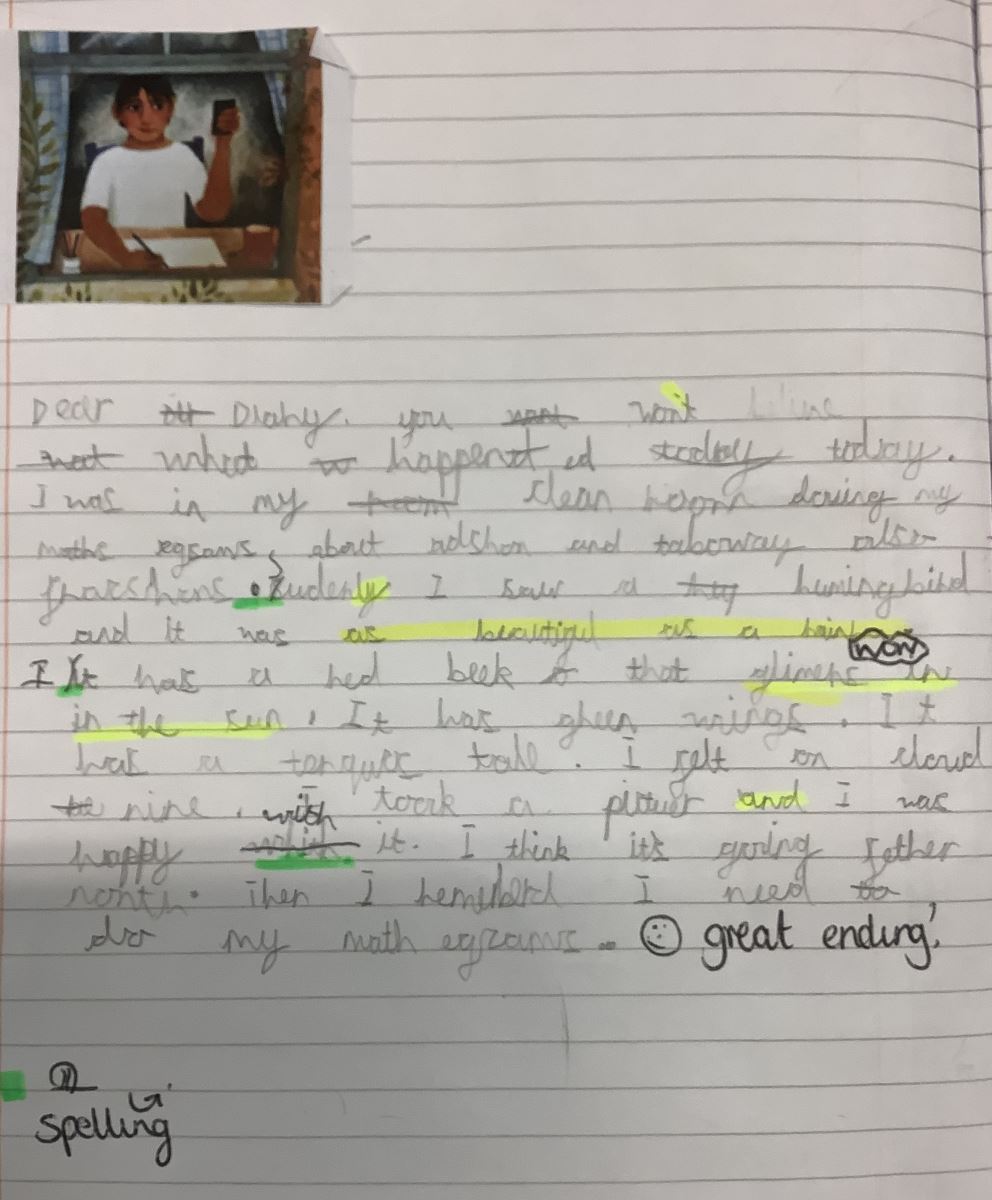 Dear Diahy. you wont won't
not what happened today today.
I was in my room clean room doring my
maths egsams, about adshon and takeway also
fracshons. Sudenly I saw a huming bird
and it was as beautiful as a rain
wow
I It has a red beek that glimers in
in the sun. It has green wings. It
has a torques tale. I felt on cloud
nine. I took a pictuer and I was
with
happy it. I think it's going fether
north. Then I remeberd I need to
do my math egzams... great ending!
spelling